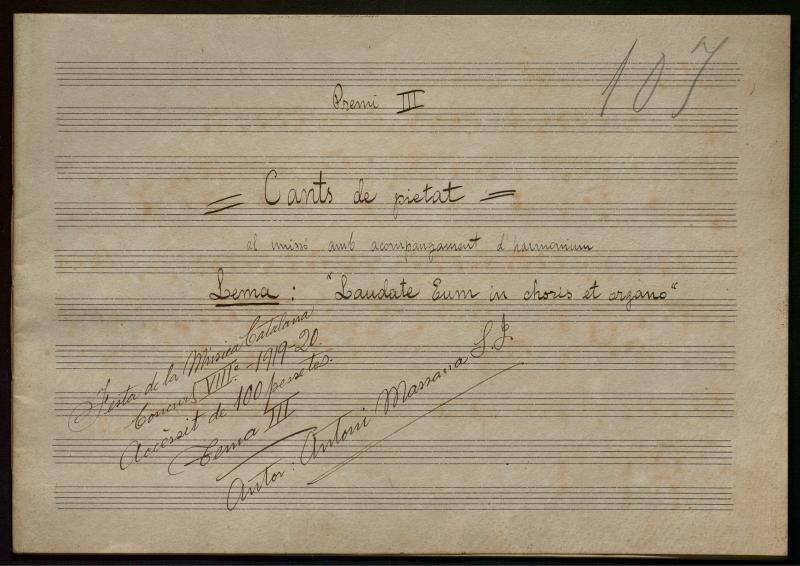 107
Premi III
= Cants de pietat =
al unissó amb acompanyament d'harmonium
Lema: "Laudate Eum in choris et organo"
Festa de la Música Catalana
Concurs VIIIè - 1919-20.
Accèssit de 100 pessetes.
Tema III
Autor: Antoni Massana S.J.